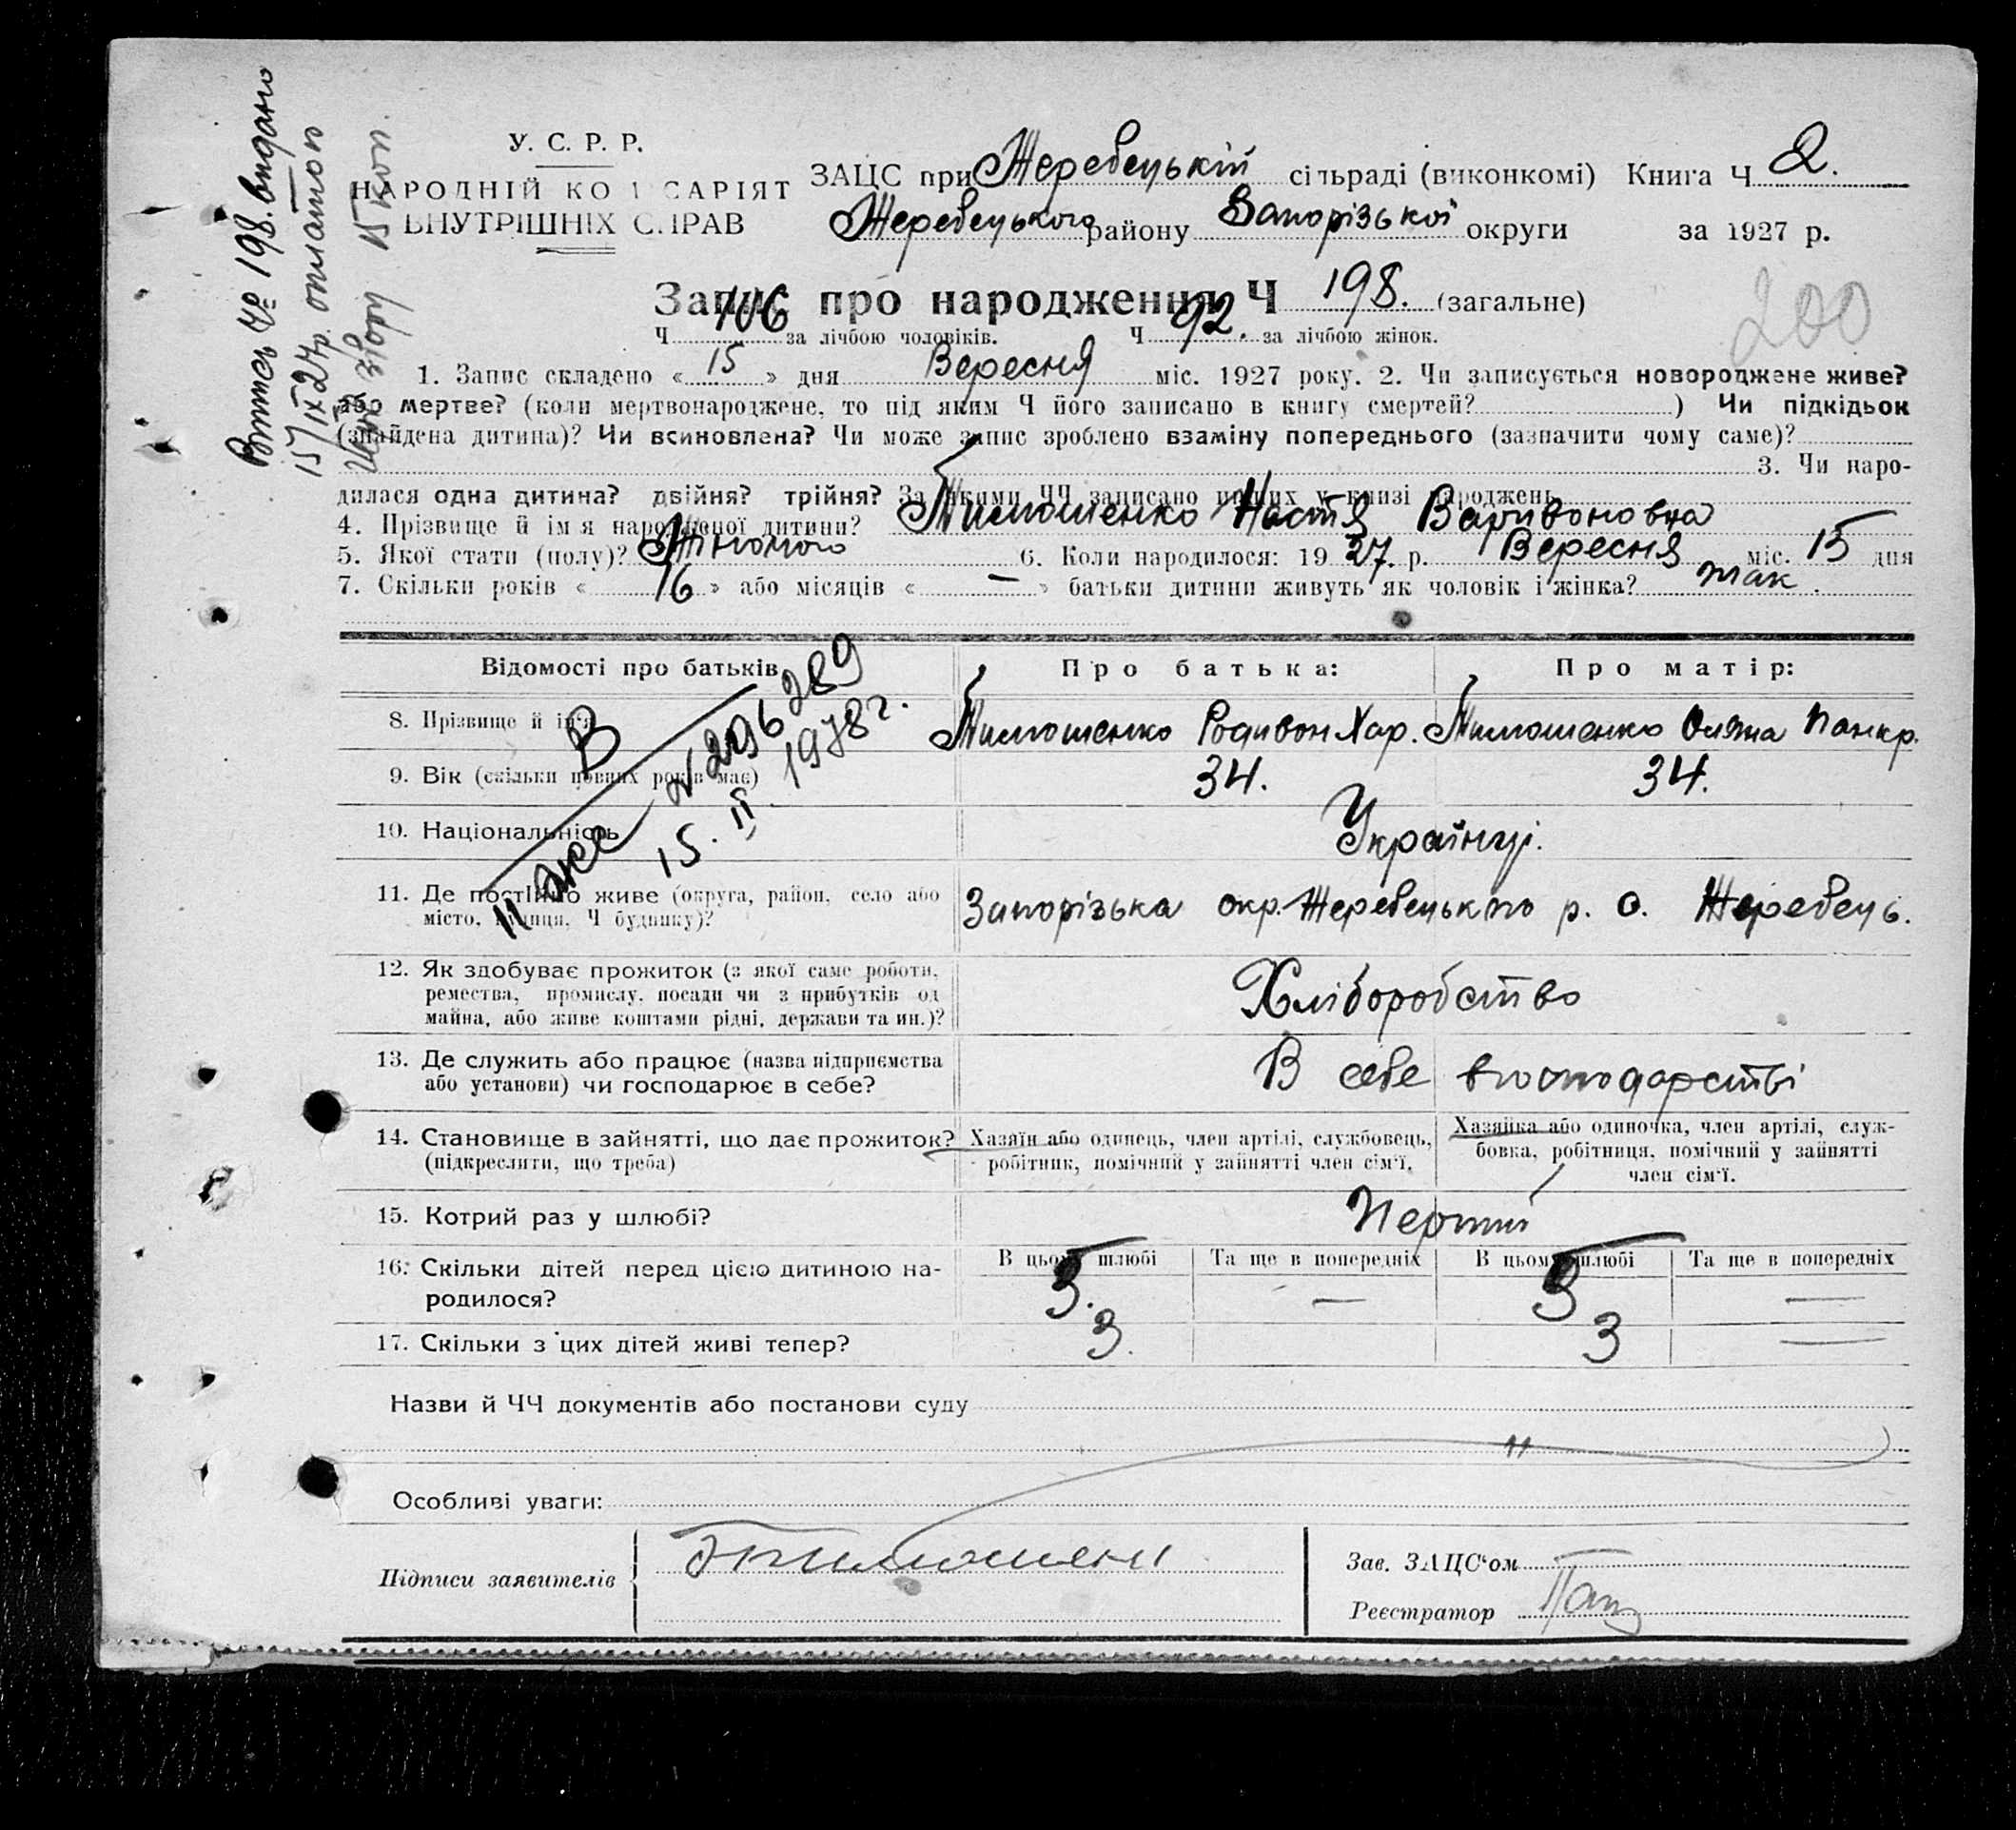 Витись № 198. видано
15/IX 27 р. оплатою
збору 15 коп.
У. С. Р. Р.
НАРОДНІЙ КОМІСАРІЯТ
ВНУТРІШНІХ СПРАВ
ЗАЦС при Жеребецькій сільраді (виконкомі) Книга Ч 2.
Жеребецького району Запорізької округи за 1927 р.
Запис про народження Ч 198. (загальне)
200
Ч 106 за лічбою чоловіків. Ч 92. за лічбою жінок.
1. Запис складено « 15 » дня Вересня міс. 1927 року. 2. Чи записується новороджене живе?
або мертве? (коли мертвонароджене, то під яким Ч його записано в книгу смертей? ) Чи підкідьок
(знайдена дитина)? Чи всиновлена? Чи може запис зроблено взаміну попереднього (зазначити чому саме)?
3. Чи наро-
дилася одна дитина? двійня? трійня? За якими ЧЧ записано инших у книзі народжень
4. Прізвище й ім'я народженої дитини? Тимошенко Настя Варивоновна
5. Якої стати (полу)? Жіночого 6. Коли народилося: 1927. р. Вересня міс. 15 дня
7. Скільки років « 16 » або місяців « — » батьки дитини живуть як чоловік і жінка? так.
Відомості про батьків Про батька: Про матір:
8. Прізвище й ім'я Тимошенко Родивон Хар. Тимошенко Оляна Панкр.
9. Вік (скільки повних років має) 34. 34.
10. Національність Українці.
В
II ЖС № 296289
15. II. 1978 г.
11. Де постійно живе (округа, район, село або
місто, вулиця, Ч будинку)? Запорізька окр. Жеребецького р. с. Жеребець.
12. Як здобуває прожиток (з якої саме роботи,
ремества, промислу, посади чи з прибутків од
майна, або живе коштами рідні, держави та ин.)? Хліборобство
13. Де служить або працює (назва підприємства
або установи) чи господарює в себе? В себе в господарстві
14. Становище в зайнятті, що дає прожиток?
(підкреслити, що треба)
Хазяїн або одинець, член артілі, службовець,
робітник, помічний у зайнятті член сім'ї.
Хазяйка або одиночка, член артілі, служ-
бовка, робітниця, помічний у зайнятті
член сім'ї.
15. Котрий раз у шлюбі? Перший
В цьому шлюбі Та ще в попередніх В цьому шлюбі Та ще в попередніх
16. Скільки дітей перед цією дитиною на-
родилося? 5. — 5 —
17. Скільки з цих дітей живі тепер? 3. 3 —
Назви й ЧЧ документів або постанови суду
Особливі уваги:
Підписи заявителів Тимошенк
Зав. ЗАЦС'ом
Реєстратор